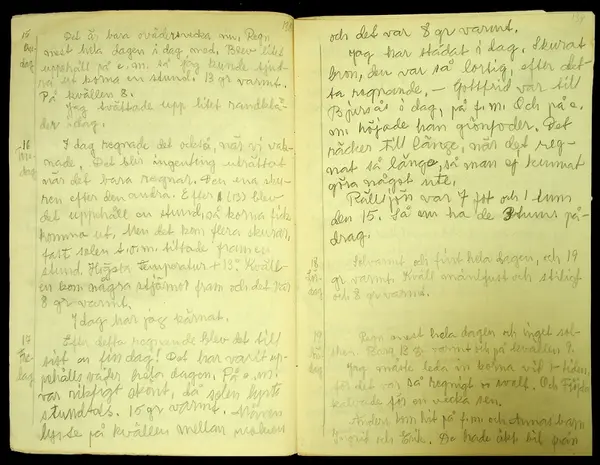 138
15 Det är bara ovädersvecka nu. Regn
Ons- mest hela dagen i dag med. Blev litet
dag uppehåll på e.m. så jag kunde
ut korna en stund. 13 gr varmt.
På kvällen 8.
Jag tvättade upp litet randklä-
der i dag.
16 I dag regnade det också, när vi vak-
nade. Det blir ingenting uträttat
dag när det bara regnar. Den ena sku-
ren efter den andra. Efter 1 (13) blev
det uppehåll en stund, så korna fick
komma ut, men det kom flera skurar,
fast solen t.o.m. tittade fram en
stund. Högsta temperatur + 13. Kväll-
en kom några stjärnor fram och det var
8 gr varmt.
I dag har jag kärnat.
17 Efter detta regnande blev det till
Fre- sist en fin dag! Det har varit up-
dag pehållsväder hela dagen. På e.m.
var riktigt skönt, då solen lyste
stundtals. 10 gr varmt. Månen
lyste på kvällen mellan molnen
139
och det var 8 gr varmt.
Jag har städat i dag. Skurat
bron, den var så lortig, efter det-
ta regnande. – Gottfrid var till
Bjursås i dag, på f.m. Och på e.
m. höjade han grönfoder. Det
räcker till länge, när det reg-
nat så länge, så man ej kunnat
göra något ute.
Rällsjön var 7 fot och 1 tum
den 15. Så en ha de på-
drag.
18 Solvarmt och fint hela dagen, och 19
Lör- gr varmt. Kväll månljust och stilligt
dag och 8 gr varmt.
19 Regn mest hela dagen och inget sol-
Sön- sken. Bara 12 gr varmt och på kvällen 9.
dag Jag måste leda in korna vid 1-tiden,
för det var så regnigt o svalt. Och
kalvade för en vecka sen.
Anders kom hit på f.m. och Annas barn
Ingrid och Erik. De hade åkt bil från